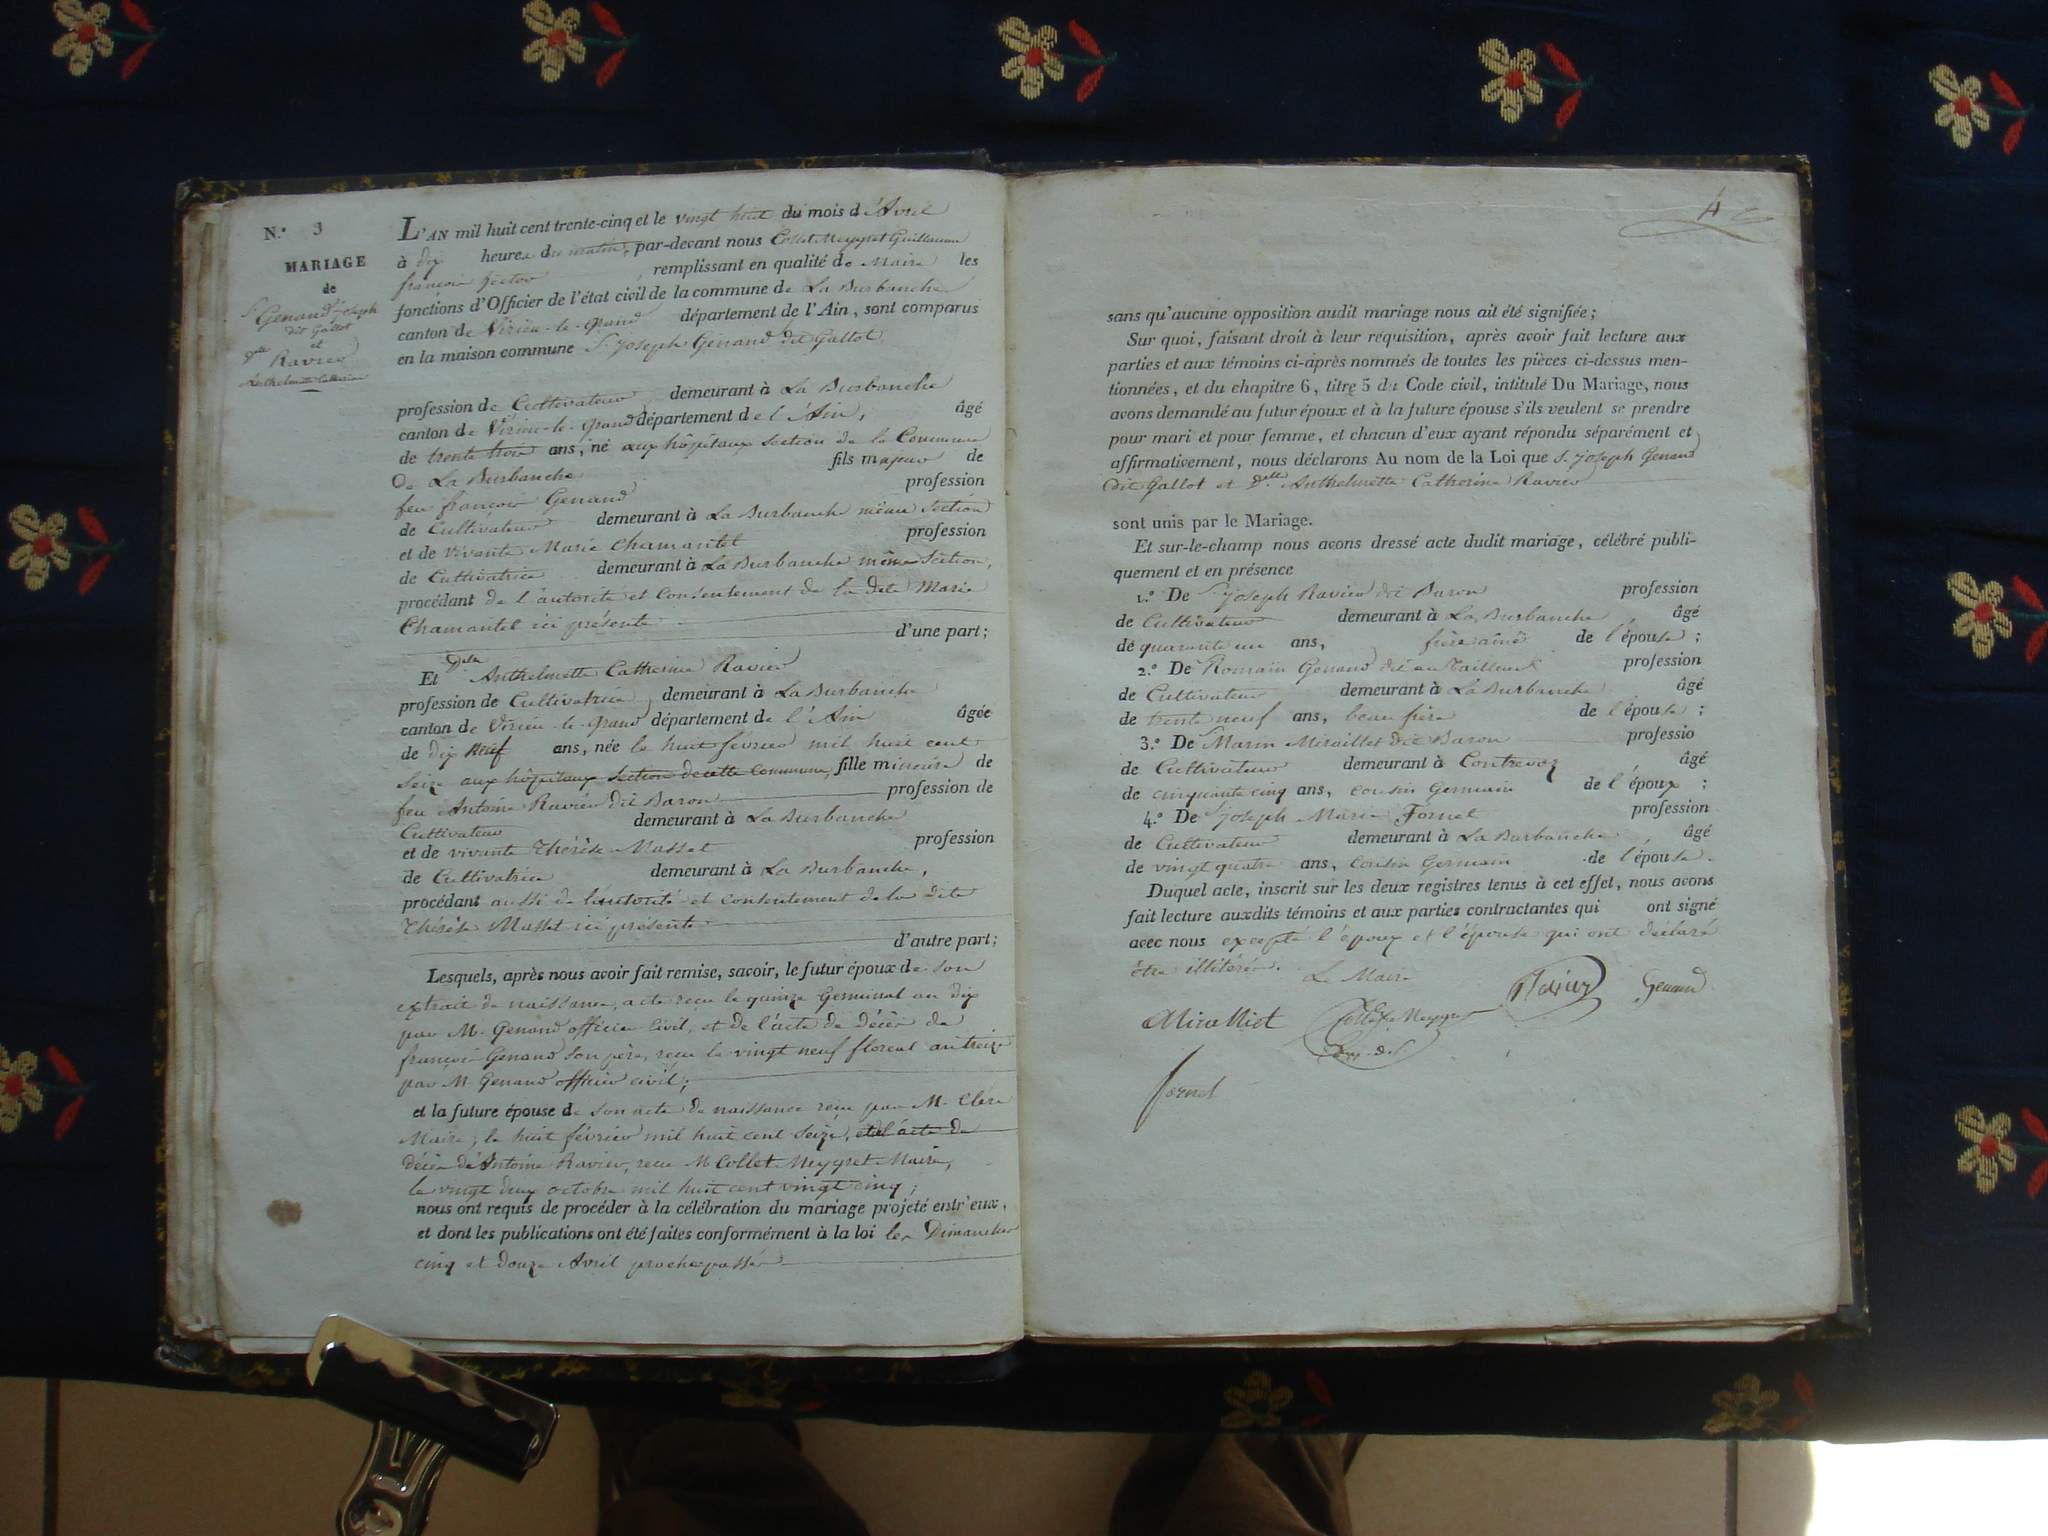 N.° 3
MARIAGE
de
S.r Genand Joseph
dit Gallot
et
D.lle Ravier
Anthelmette Catherine
L'AN mil huit cent trente-cinq et le vingt huit du mois d'Avril
à dix heures du matin, par-devant nous Collet-Meygret Guillaume
françois hector, remplissant en qualité de Maire les
fonctions d'Officier de l'état civil de la commune de La Burbanche
canton de Virieu-le-grand département de l'Ain, sont comparus
en la maison commune S.r Joseph Genand dit Gallot,
profession de Cultivateur demeurant à La Burbanche
canton de Virieu-le-Grand département de l'Ain, âgé
de trente trois ans, né aux hôpitaux section de la Commune
De La Burbanche fils majeur de
feu françois Genand profession
de Cultivateur demeurant à La Burbanche même section
et de vivante Marie Chamantet profession
de Cultivatrice demeurant à La Burbanche même section,
procédant de l'autorité et consentement de la dite Marie
Chamantet ici présente d'une part;
Et D.lle Anthelmette Catherine Ravier
profession de Cultivatrice demeurant à La Burbanche
canton de Virieu-le-grand département de l'Ain âgée
de dix neuf ans, née le huit février mil huit cent
seize aux hôpitaux section de cette Commune, fille mineure de
feu Antoine Ravier dit Baron profession de
Cultivateur demeurant à La Burbanche
et de vivante Thérèse Masset profession
de Cultivatrice demeurant à La Burbanche,
procédant aussi de l'autorité et consentement de la dite
Thérèse Masset ici présente
d'autre part;
Lesquels, après nous avoir fait remise, savoir, le futur époux de son
extrait de naissance, acte reçu le quinze Germinal an dix
par M. Genand officier Civil, et de l'acte de décès de
françois Genand son père, reçu le vingt neuf floreal an treize
par M. Genand officier civil;
et la future épouse de son acte de naissance reçu par M. Clerc
Maire, le huit février mil huit cent seize, et de l'acte de
décès de Antoine Ravier, reçu M Collet-Meygret Maire,
le vingt deux octobre mil huit cent vingt cinq;
nous ont requis de procéder à la célébration du mariage projeté entr'eux,
et dont les publications ont été faites conformément à la loi les Dimanches
cinq et douze Avril proche passés
4
sans qu'aucune opposition audit mariage nous ait été signifiée;
Sur quoi, faisant droit à leur réquisition, après avoir fait lecture aux
parties et aux témoins ci-après nommés de toutes les pièces ci-dessus men-
tionnées, et du chapitre 6, titre 5 du Code civil, intitulé Du Mariage, nous
avons demandé au futur époux et à la future épouse s'ils veulent se prendre
pour mari et pour femme, et chacun d'eux ayant répondu séparément et
affirmativement, nous déclarons Au nom de la Loi que S.r Joseph Genand
dit Gallot et D.lle Anthelmette Catherine Ravier
sont unis par le Mariage.
Et sur-le-champ nous avons dressé acte dudit mariage, célébré publi-
quement et en présence
1.° De S.r Joseph Ravier dit Baron profession
de Cultivateur demeurant à La Burbanche âgé
de quarante un ans, frère aîné de l'épouse;
2.° De Romain Genand dit au Tailleur profession
de Cultivateur demeurant à La Burbanche âgé
de trente neuf ans, beau frère de l'épouse;
3.° De Marin Miraillet dit Baron professio
de Cultivateur demeurant à Contrevoz âgé
de cinquante cinq ans, cousin Germain de l'époux;
4.° De S.r Joseph Marie Fornet profession
de Cultivateur demeurant à La Burbanche, âgé
de vingt quatre ans, cousin Germain de l'épouse.
Duquel acte, inscrit sur les deux registres tenus à cet effet, nous avons
fait lecture auxdits témoins et aux parties contractantes qui ont signé
avec nous excepté l'époux et l'épouse qui ont déclaré
être illitérés.
Le Maire
Ravier
Genand
Miralliet
Collet Meygret
fornet